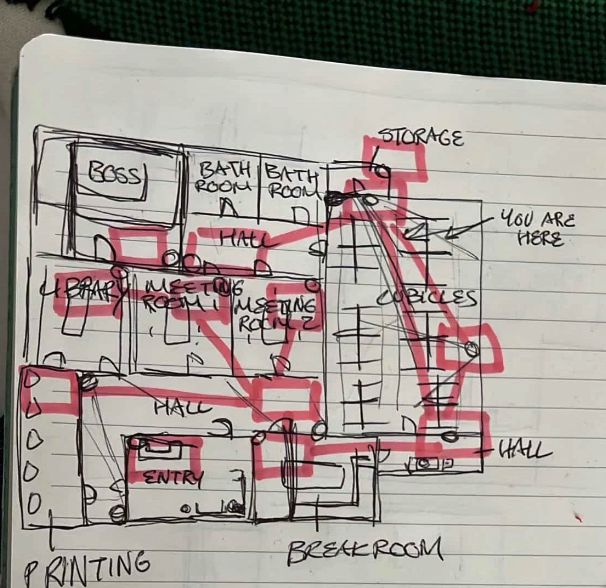 STORAGE
BOSS
BATH
ROOM
BATH
ROOM
HALL
YOU ARE
HERE
LIBRARY
MEETING
ROOM 1
MEETING
ROOM 2
CUBICLES
HALL
HALL
ENTRY
BREAKROOM
PRINTING